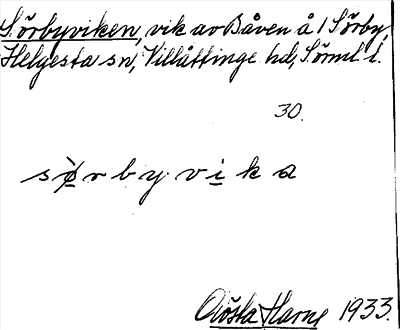 Sörbyviken, vik av Båven å 1 Sörby,
Helgesta sn, Villåttinge hd, Sörml. l.
30.
s ø r b y v i k a
Gösta Harne 1933.